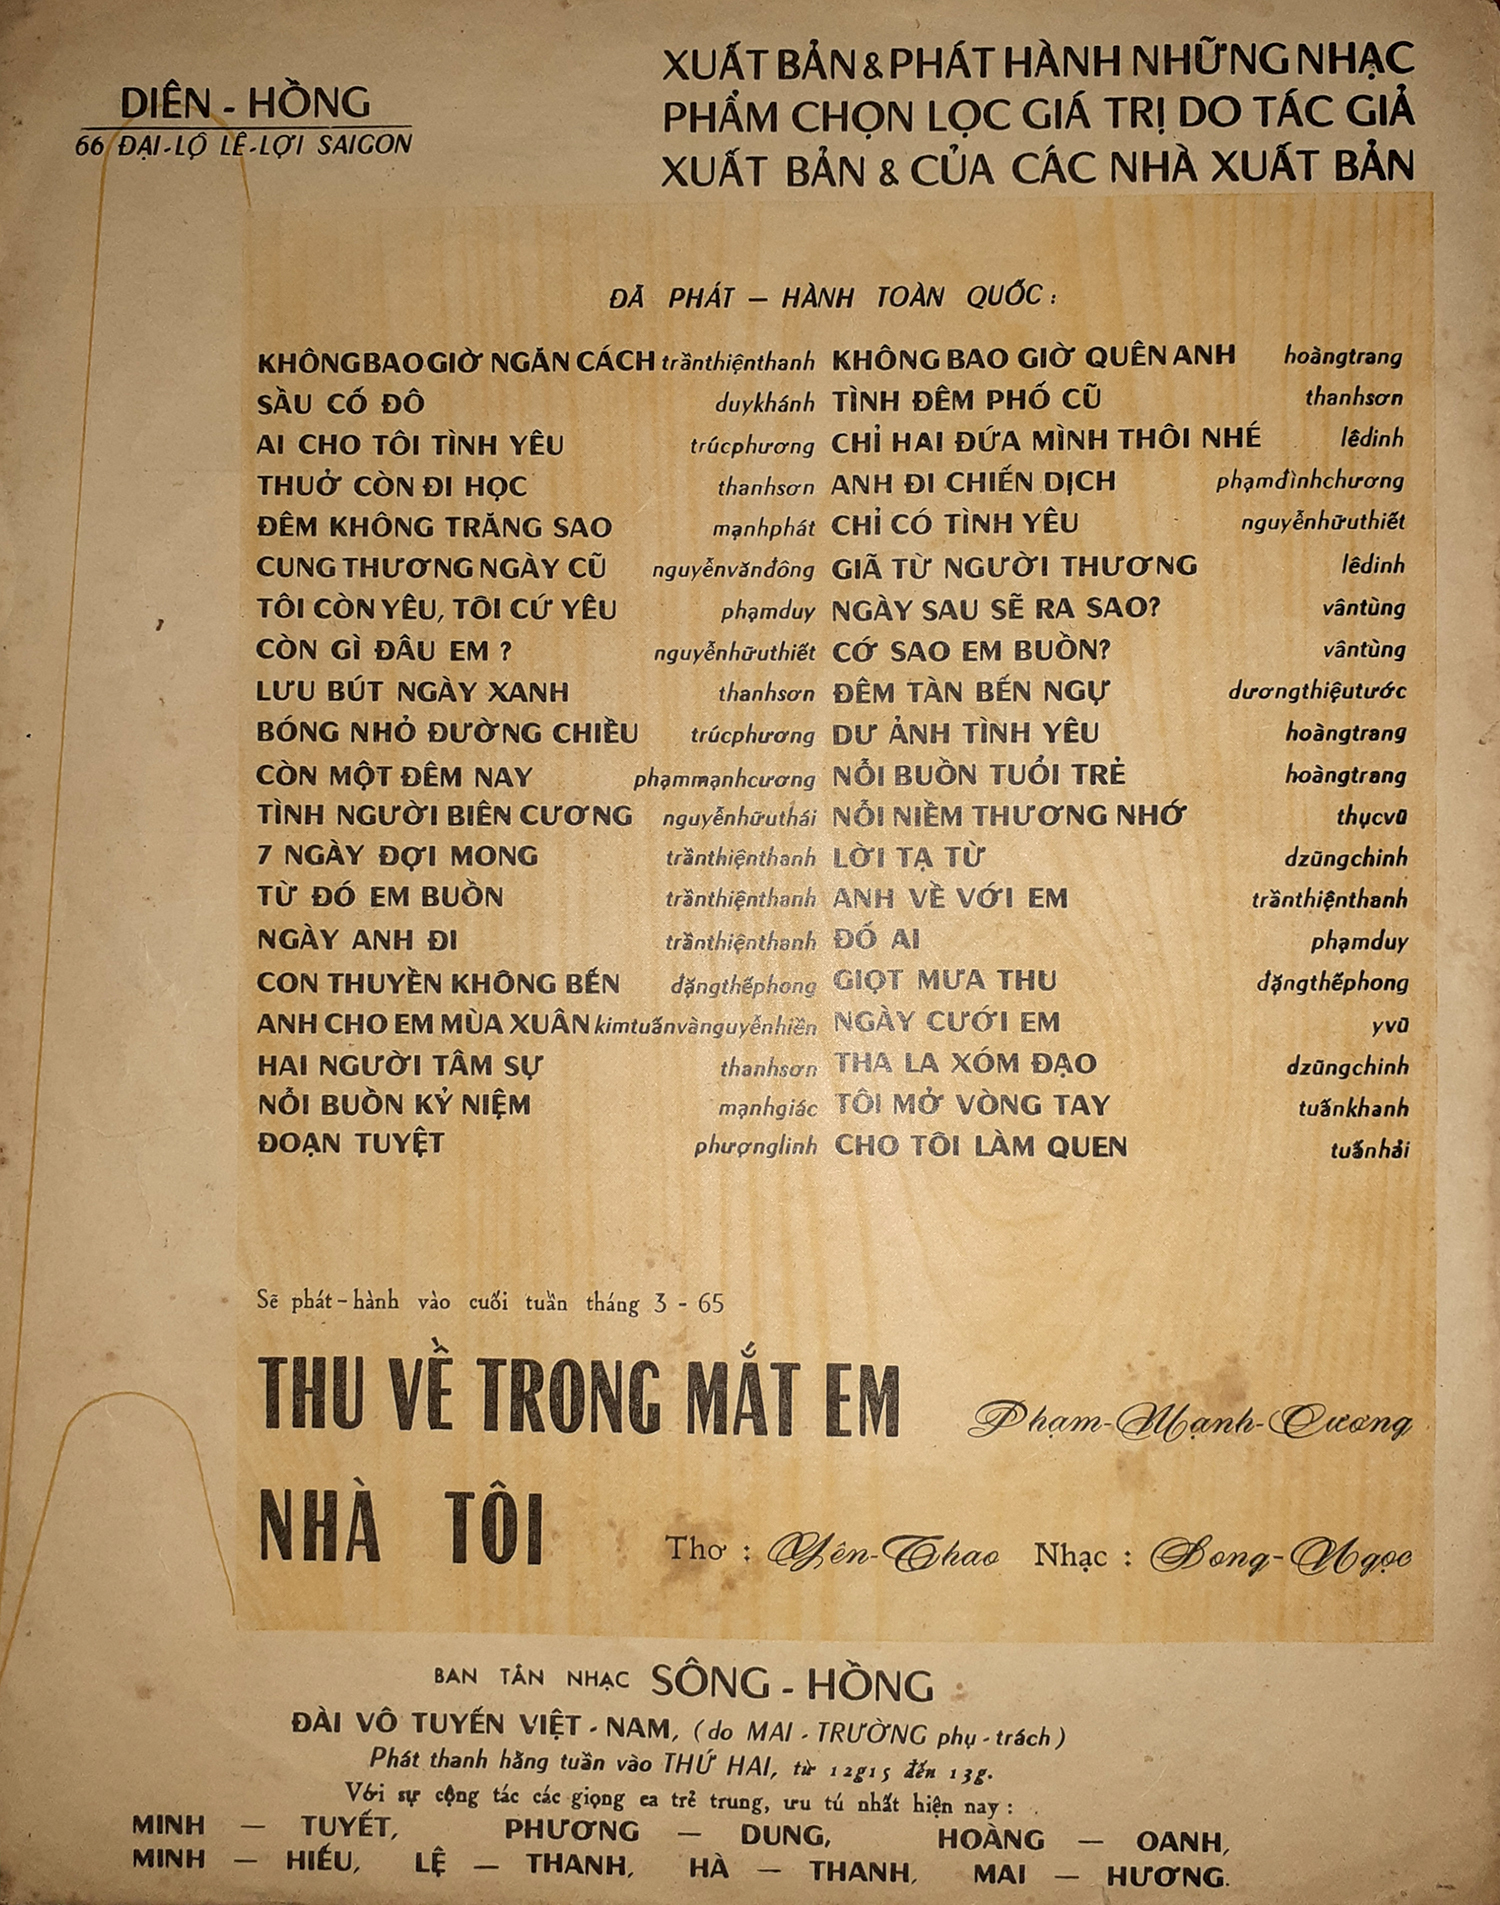 DIÊN - HỒNG
66 ĐẠI-LỘ LÊ-LỢI SAIGON
XUẤT BẢN & PHÁT HÀNH NHỮNG NHẠC
PHẨM CHỌN LỌC GIÁ TRỊ DO TÁC GIẢ
XUẤT BẢN & CỦA CÁC NHÀ XUẤT BẢN
ĐÃ PHÁT — HÀNH TOÀN QUỐC :
KHÔNG BAO GIỜ NGĂN CÁCH trầnthiệnthanh KHÔNG BAO GIỜ QUÊN ANH hoàngtrang
SẦU CỐ ĐÔ duykhánh TÌNH ĐÊM PHỐ CŨ thanhsơn
AI CHO TÔI TÌNH YÊU trúcphương CHỈ HAI ĐỨA MÌNH THÔI NHÉ lêdinh
THUỞ CÒN ĐI HỌC thanhsơn ANH ĐI CHIẾN DỊCH phạmđìnhchương
ĐÊM KHÔNG TRĂNG SAO mạnhphát CHỈ CÓ TÌNH YÊU nguyễnhữuthiết
CUNG THƯƠNG NGÀY CŨ nguyễnvănđông GIÃ TỪ NGƯỜI THƯƠNG lêdinh
TÔI CÒN YÊU, TÔI CỨ YÊU phạmduy NGÀY SAU SẼ RA SAO? vântùng
CÒN GÌ ĐÂU EM ? nguyễnhữuthiết CỚ SAO EM BUỒN? vântùng
LƯU BÚT NGÀY XANH thanhsơn ĐÊM TÀN BẾN NGỰ dươngthiệutước
BÓNG NHỎ ĐƯỜNG CHIỀU trúcphương DƯ ẢNH TÌNH YÊU hoàngtrang
CÒN MỘT ĐÊM NAY phạmmạnhcương NỖI BUỒN TUỔI TRẺ hoàngtrang
TÌNH NGƯỜI BIÊN CƯƠNG nguyễnhữuthái NỖI NIỀM THƯƠNG NHỚ thụcvũ
7 NGÀY ĐỢI MONG trầnthiệnthanh LỜI TẠ TỪ dzũngchinh
TỪ ĐÓ EM BUỒN trầnthiệnthanh ANH VỀ VỚI EM trầnthiệnthanh
NGÀY ANH ĐI trầnthiệnthanh ĐỐ AI phạmduy
CON THUYỀN KHÔNG BẾN đặngthếphong GIỌT MƯA THU đặngthếphong
ANH CHO EM MÙA XUÂN kimtuấnvànguyễnhiền NGÀY CƯỚI EM yvũ
HAI NGƯỜI TÂM SỰ thanhsơn THA LA XÓM ĐẠO dzũngchinh
NỖI BUỒN KỶ NIỆM mạnhgiác TÔI MỞ VÒNG TAY tuấnkhanh
ĐOẠN TUYỆT phượnglinh CHO TÔI LÀM QUEN tuấnhải
Sẽ phát-hành vào cuối tuần tháng 3 - 65
THU VỀ TRONG MẮT EM Phạm-Mạnh-Cương
NHÀ TÔI Thơ : Yên-Thao Nhạc : Song-Ngọc
BAN TÂN NHẠC SÔNG - HỒNG
ĐÀI VÔ TUYẾN VIỆT - NAM, (do MAI - TRƯỜNG phụ - trách)
Phát thanh hằng tuần vào THỨ HAI, từ 12g15 đến 13g.
Với sự cộng tác các giọng ca trẻ trung, ưu tú nhất hiện nay :
MINH — TUYẾT, PHƯƠNG — DUNG, HOÀNG — OANH,
MINH — HIẾU, LỆ — THANH, HÀ — THANH, MAI — HƯƠNG.